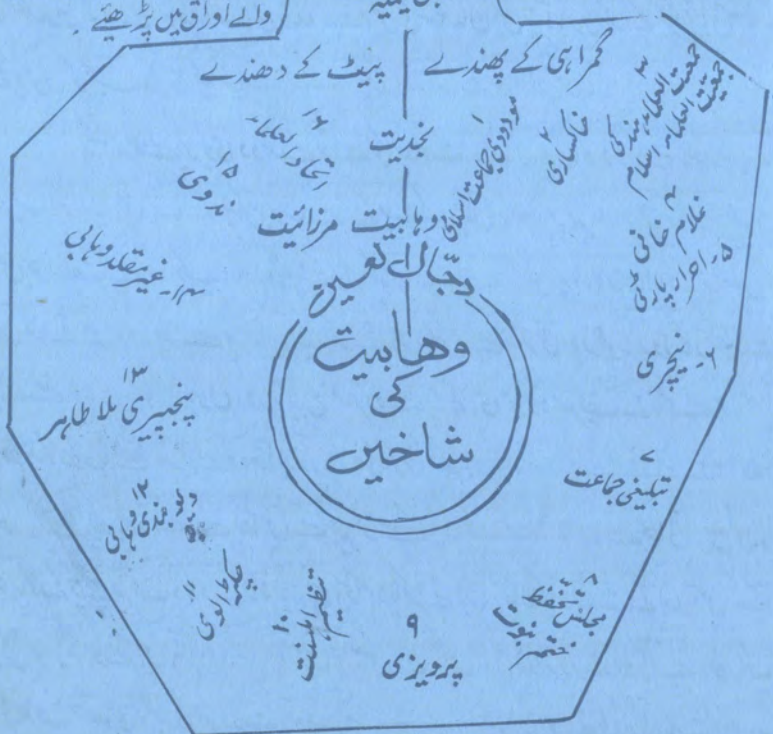 والے اوراق میں پڑھئیے
گمراہی کے پھندے
پیٹ کے دھندے
نجدیت
وہابیت مرزائیت
دجال لعین
وھابیت
کی
شاخیں
۱ مودودی جماعت اسلامی
۲ خاکساری
۳ جمعیت العلماء ہند کی
جمعیت العلماء اسلام
۴ غلام خانی ٹٹی
۵۔ احرار پارٹی
۶۔ نیچری
۷ تبلیغی جماعت
۸ مجلس تحفظ
ختم نبوت
۹ پرویزی
۱۰ تنظیم اہلسنت
۱۱ چکڑالوی
۱۲ دیوبندی وہابی
۱۳ پنجپیری ملا طاہر
۱۴۔ غیر مقلد وہابی
۱۵ ندوی
۱۶ اتحاد العلماء